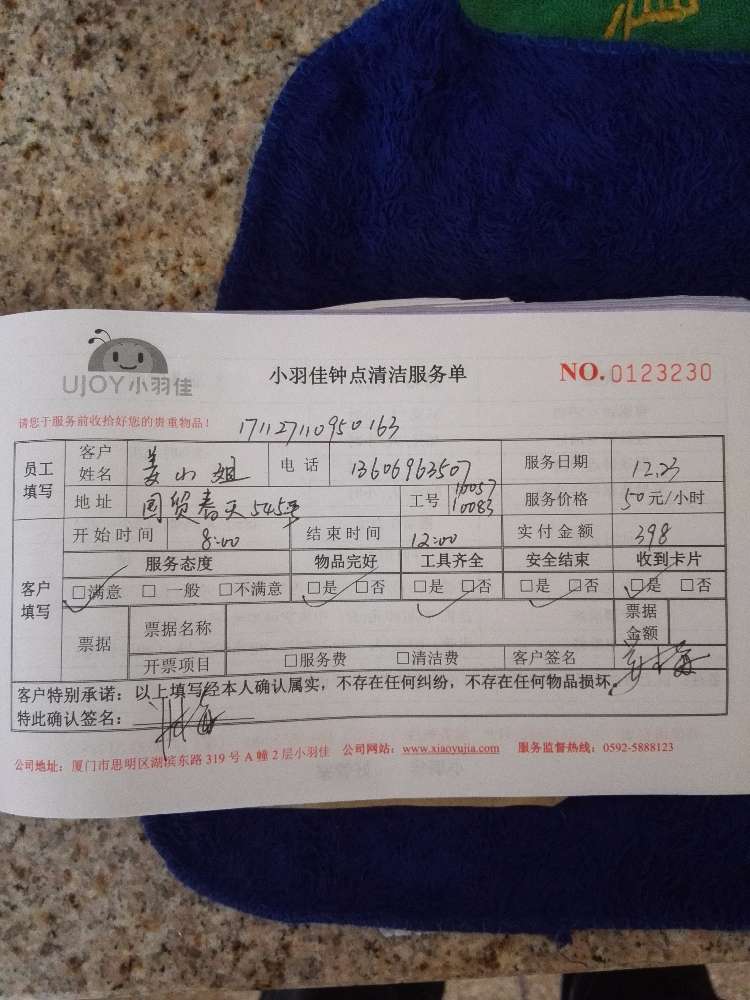 UJOY小羽佳
小羽佳钟点清洁服务单
NO.0123230
请您于服务前收拾好您的贵重物品！
171127110950163
员工填写 客户姓名 姜小姐 电话 13606963507 服务日期 12.23
地址 国贸春天545 工号 10057 10083 服务价格 50元/小时
客户填写 开始时间 8:00 结束时间 12:00 实付金额 398
服务态度 物品完好 工具齐全 安全结束 收到卡片
□满意 □一般 □不满意 □是 □否 □是 □否 □是 □否 □是 □否
票据 票据名称 票据金额
开票项目 □服务费 □清洁费 客户签名
客户特别承诺：以上填写经本人确认属实，不存在任何纠纷，不存在任何物品损坏.
特此确认签名：
公司地址：厦门市思明区湖滨东路319号A幢2层小羽佳 公司网站：www.xiaoyujia.com 服务监督热线：0592-5888123